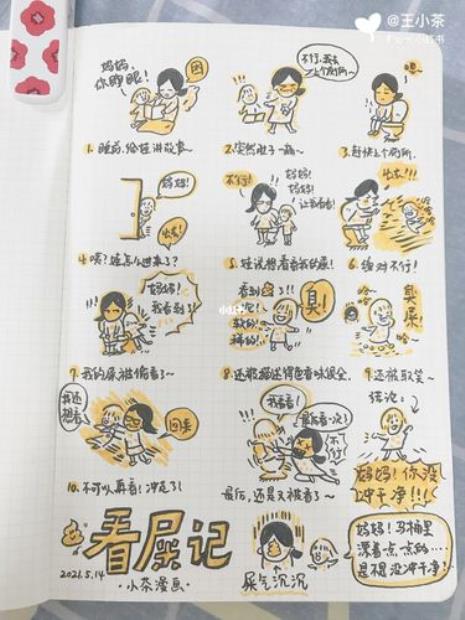 @王小茶
妈妈,
你睁眼!
困
1. 睡前,给娃讲故事~
不行,我去
上个厕所~
2. 突然肚子一痛~
嗯~
3. 赶快上个厕所.
妈妈!
4. 咦?娃怎么进来了?
不行!
妈妈!
妈妈!
让我看看!
5. 娃说想看看我的屎!
出去!!!
6. 绝对不行!
妈妈!
我看到了
7. 我的屎被偷看了~
看到
了!!
臭!
软的!
稀的!
8. 还被描述得色香味俱全.
哈
哈
臭
屎!
9. 还被取笑~
我还
想看
回来
10. 不可以再看!冲走了!
我看看!
最后看一次!
不行
最后,还是又被看了~
结论:
妈妈!你没
冲干净!!!
看屎记
2021.5.14
·小茶漫画·
屎气沉沉
妈妈!马桶里
漂着一点一点的……
是不是没冲干净!